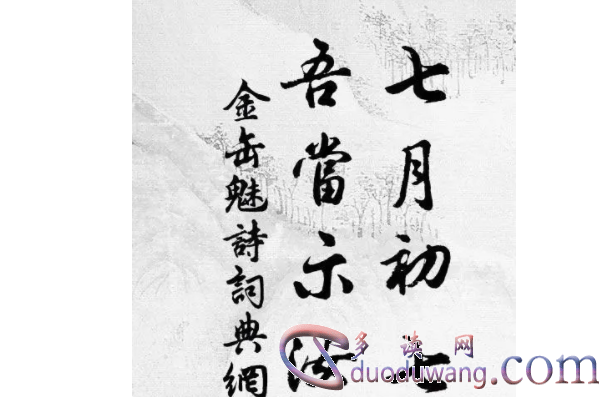 七月初七
吾當示汝
金缶魅詩詞典網
多读网
duoduwang.com